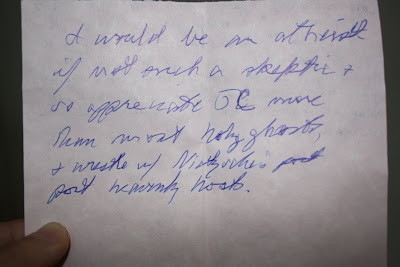 I would be an atheist
if not such a skeptic +
so appreciate JC more
than most holy ghosts,
+ wrestle w/ Nietzsche's post
post heavenly hosts.